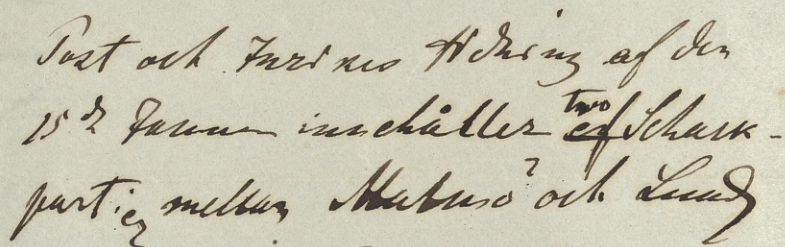 Post och Inrikes Tidning af den
15de Januari innehåller two af Schack-
partier mellan Malmö? och Lund